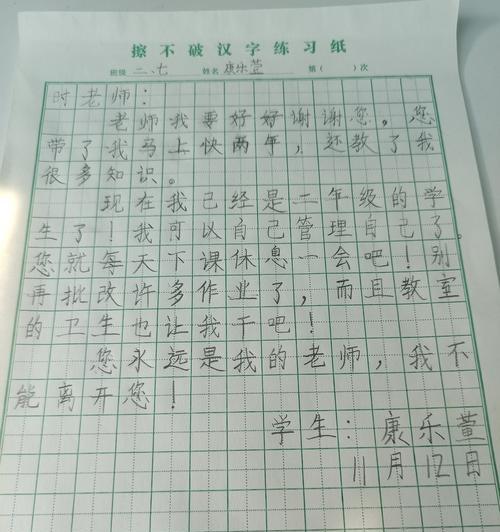 擦不破汉字练习纸
班级 二、七 姓名 康乐萱 第( )次
时老师：
老师我要好好谢谢您。您
带了我马上快两年，还教了我
很多知识。
现在我已经是二年级的学
生了！我可以自己管理自己了。
您就每天下课休息一会吧！别
再批改许多作业了，而且教室
的卫生也让我干吧！
您永远是我的老师，我不
能离开您！
学生：康乐萱
11月12日